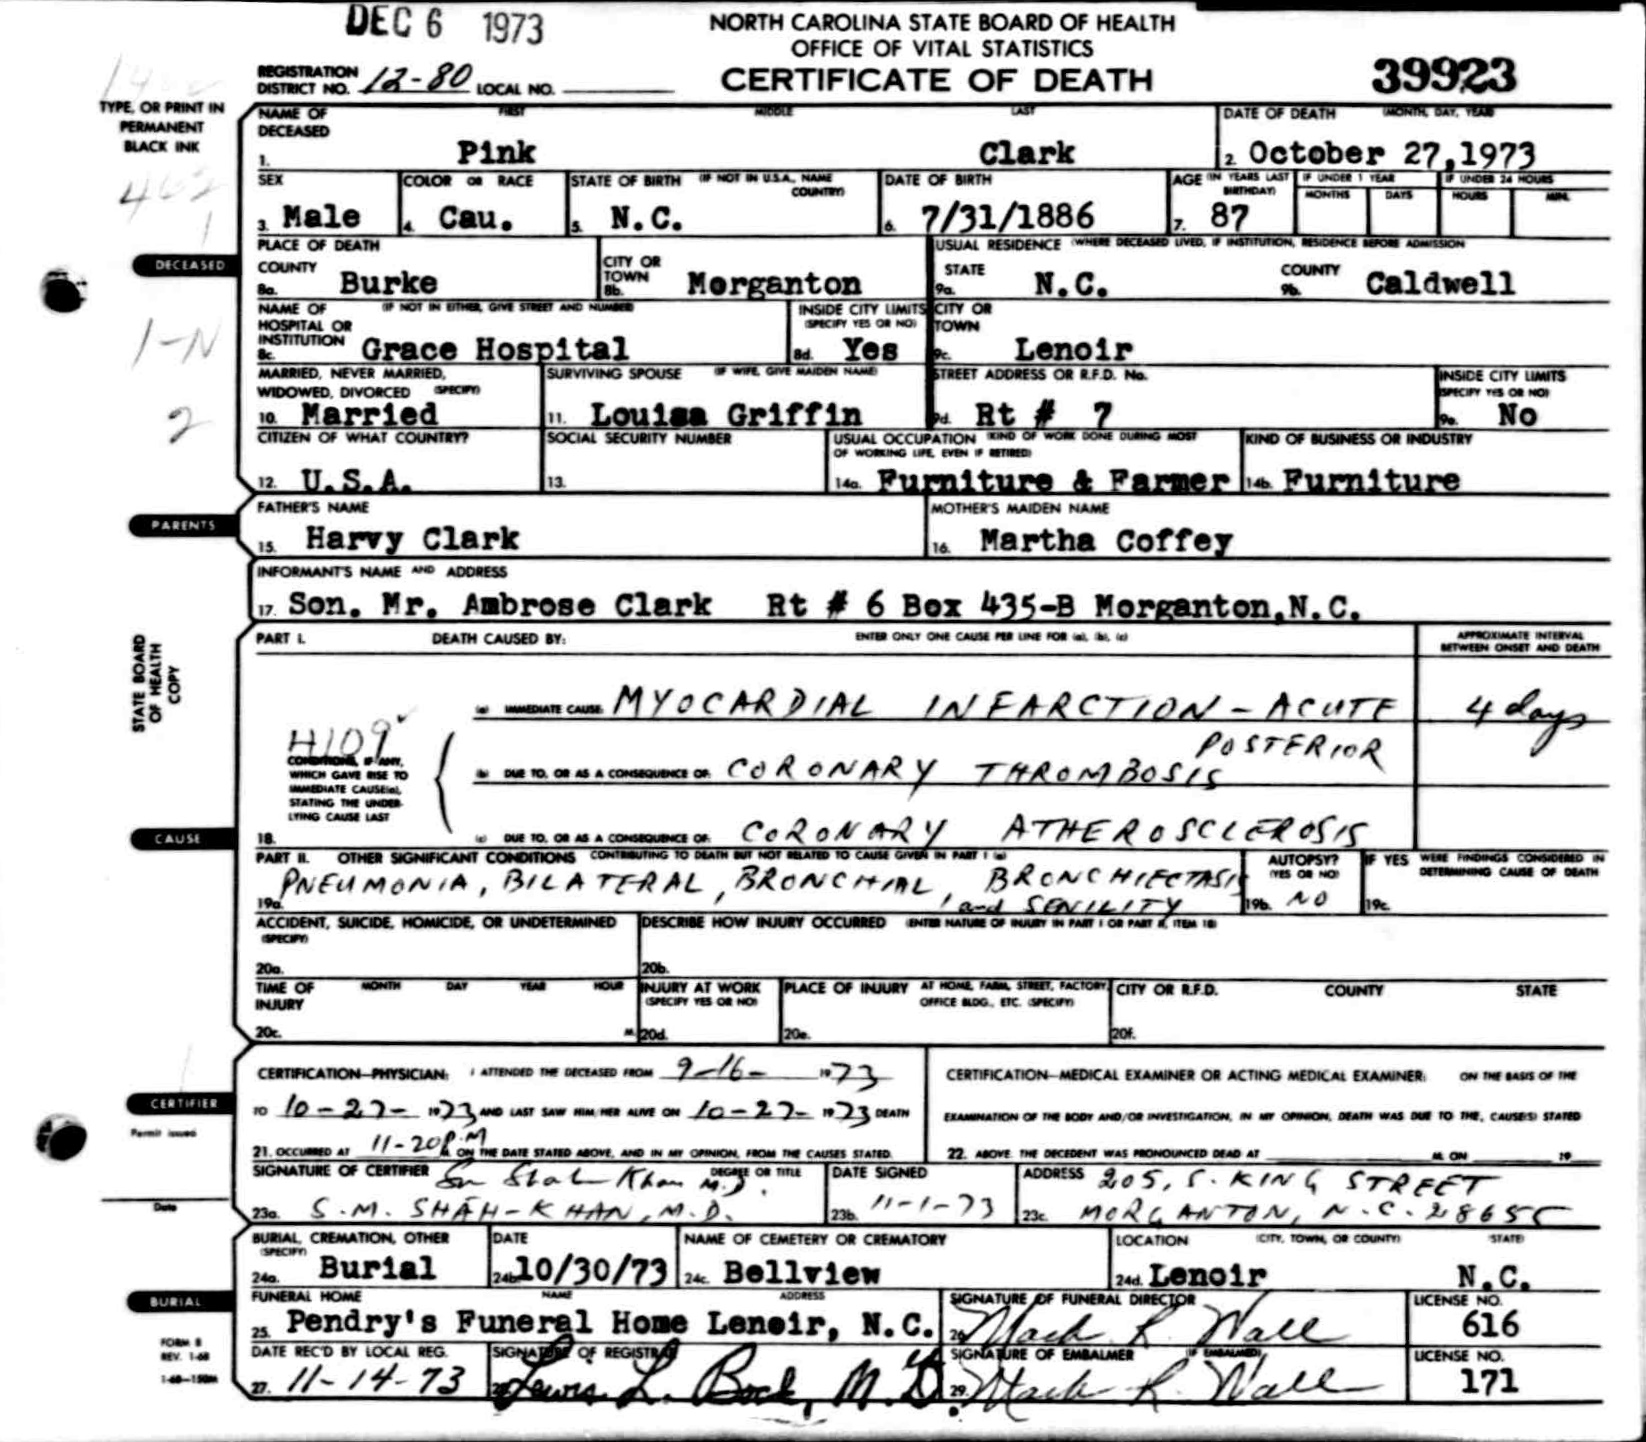 DEC 6 1973
NORTH CAROLINA STATE BOARD OF HEALTH
OFFICE OF VITAL STATISTICS
CERTIFICATE OF DEATH
39923
REGISTRATION DISTRICT NO. 12-80 LOCAL NO.
TYPE, OR PRINT IN PERMANENT BLACK INK
NAME OF DECEASED FIRST MIDDLE LAST DATE OF DEATH (MONTH, DAY, YEAR)
1. Pink Clark 2. October 27,1973
SEX COLOR OR RACE STATE OF BIRTH (IF NOT IN U.S.A., NAME COUNTRY) DATE OF BIRTH AGE (IN YEARS LAST BIRTHDAY) IF UNDER 1 YEAR MONTHS DAYS IF UNDER 24 HOURS HOURS MIN.
3. Male 4. Cau. 5. N.C. 6. 7/31/1886 7. 87
DECEASED
PLACE OF DEATH USUAL RESIDENCE (WHERE DECEASED LIVED, IF INSTITUTION, RESIDENCE BEFORE ADMISSION
COUNTY 8a. Burke CITY OR TOWN 8b. Morganton STATE 9a. N.C. COUNTY 9b. Caldwell
NAME OF HOSPITAL OR INSTITUTION (IF NOT IN EITHER, GIVE STREET AND NUMBER) INSIDE CITY LIMITS (SPECIFY YES OR NO) CITY OR TOWN
8c. Grace Hospital 8d. Yes 9c. Lenoir
1-N
MARRIED, NEVER MARRIED, WIDOWED, DIVORCED (SPECIFY) SURVIVING SPOUSE (IF WIFE, GIVE MAIDEN NAME) STREET ADDRESS OR R.F.D. No. INSIDE CITY LIMITS (SPECIFY YES OR NO)
10. Married 11. Louisa Griffin 9d. Rt # 7 9e. No
2
CITIZEN OF WHAT COUNTRY? SOCIAL SECURITY NUMBER USUAL OCCUPATION (KIND OF WORK DONE DURING MOST OF WORKING LIFE, EVEN IF RETIRED) KIND OF BUSINESS OR INDUSTRY
12. U.S.A. 13. 14a. Furniture & Farmer 14b. Furniture
PARENTS
FATHER'S NAME MOTHER'S MAIDEN NAME
15. Harvy Clark 16. Martha Coffey
INFORMANT'S NAME AND ADDRESS
17. Son. Mr. Ambrose Clark Rt # 6 Box 435-B Morganton,N.C.
STATE BOARD OF HEALTH COPY
PART I. DEATH CAUSED BY: ENTER ONLY ONE CAUSE PER LINE FOR (a), (b), (c) APPROXIMATE INTERVAL BETWEEN ONSET AND DEATH
(a) IMMEDIATE CAUSE: MYOCARDIAL INFARCTION - ACUTE 4 days
POSTERIOR
H109
CONDITIONS, IF ANY, WHICH GAVE RISE TO IMMEDIATE CAUSE(a), STATING THE UNDERLYING CAUSE LAST
(b) DUE TO, OR AS A CONSEQUENCE OF: CORONARY THROMBOSIS
CAUSE
18. (c) DUE TO, OR AS A CONSEQUENCE OF: CORONARY ATHEROSCLEROSIS
PART II. OTHER SIGNIFICANT CONDITIONS CONTRIBUTING TO DEATH BUT NOT RELATED TO CAUSE GIVEN IN PART I (a) AUTOPSY? (YES OR NO) IF YES WERE FINDINGS CONSIDERED IN DETERMINING CAUSE OF DEATH
19a. PNEUMONIA, BILATERAL, BRONCHIAL, BRONCHIECTASIS and SENILITY 19b. NO 19c.
ACCIDENT, SUICIDE, HOMICIDE, OR UNDETERMINED (SPECIFY) DESCRIBE HOW INJURY OCCURRED (ENTER NATURE OF INJURY IN PART I OR PART II, ITEM 18)
20a. 20b.
TIME OF INJURY MONTH DAY YEAR HOUR INJURY AT WORK (SPECIFY YES OR NO) PLACE OF INJURY AT HOME, FARM, STREET, FACTORY, OFFICE BLDG., ETC. (SPECIFY) CITY OR R.F.D. COUNTY STATE
20c. M. 20d. 20e. 20f.
CERTIFIER
Permit issued
Date
CERTIFICATION—PHYSICIAN: I ATTENDED THE DECEASED FROM 9-16- 1973
TO 10-27- 1973 AND LAST SAW HIM/HER ALIVE ON 10-27- 1973 DEATH
21. OCCURRED AT 11-20P.M M. ON THE DATE STATED ABOVE, AND IN MY OPINION, FROM THE CAUSES STATED.
CERTIFICATION—MEDICAL EXAMINER OR ACTING MEDICAL EXAMINER: ON THE BASIS OF THE
EXAMINATION OF THE BODY AND/OR INVESTIGATION, IN MY OPINION, DEATH WAS DUE TO THE, CAUSE(S) STATED
22. ABOVE. THE DECEDENT WAS PRONOUNCED DEAD AT M. ON 19
SIGNATURE OF CERTIFIER Shah Khan M.D. DEGREE OR TITLE DATE SIGNED ADDRESS 205, S. KING STREET
23a. S.M. SHAH-KHAN, M.D. 23b. 11-1-73 23c. MORGANTON, N.C. 28655
BURIAL
BURIAL, CREMATION, OTHER (SPECIFY) DATE NAME OF CEMETERY OR CREMATORY LOCATION (CITY, TOWN, OR COUNTY) (STATE)
24a. Burial 24b. 10/30/73 24c. Bellview 24d. Lenoir N.C.
FUNERAL HOME NAME ADDRESS SIGNATURE OF FUNERAL DIRECTOR LICENSE NO.
25. Pendry's Funeral Home Lenoir, N.C. 26. Mack R. Wall 616
DATE REC'D BY LOCAL REG. SIGNATURE OF REGISTRAR SIGNATURE OF EMBALMER (IF EMBALMED) LICENSE NO.
27. 11-14-73 28. Lewis L. Bock, M.D. 29. Mack R. Wall 171
FORM 8
REV. 1-68
1-68—150M